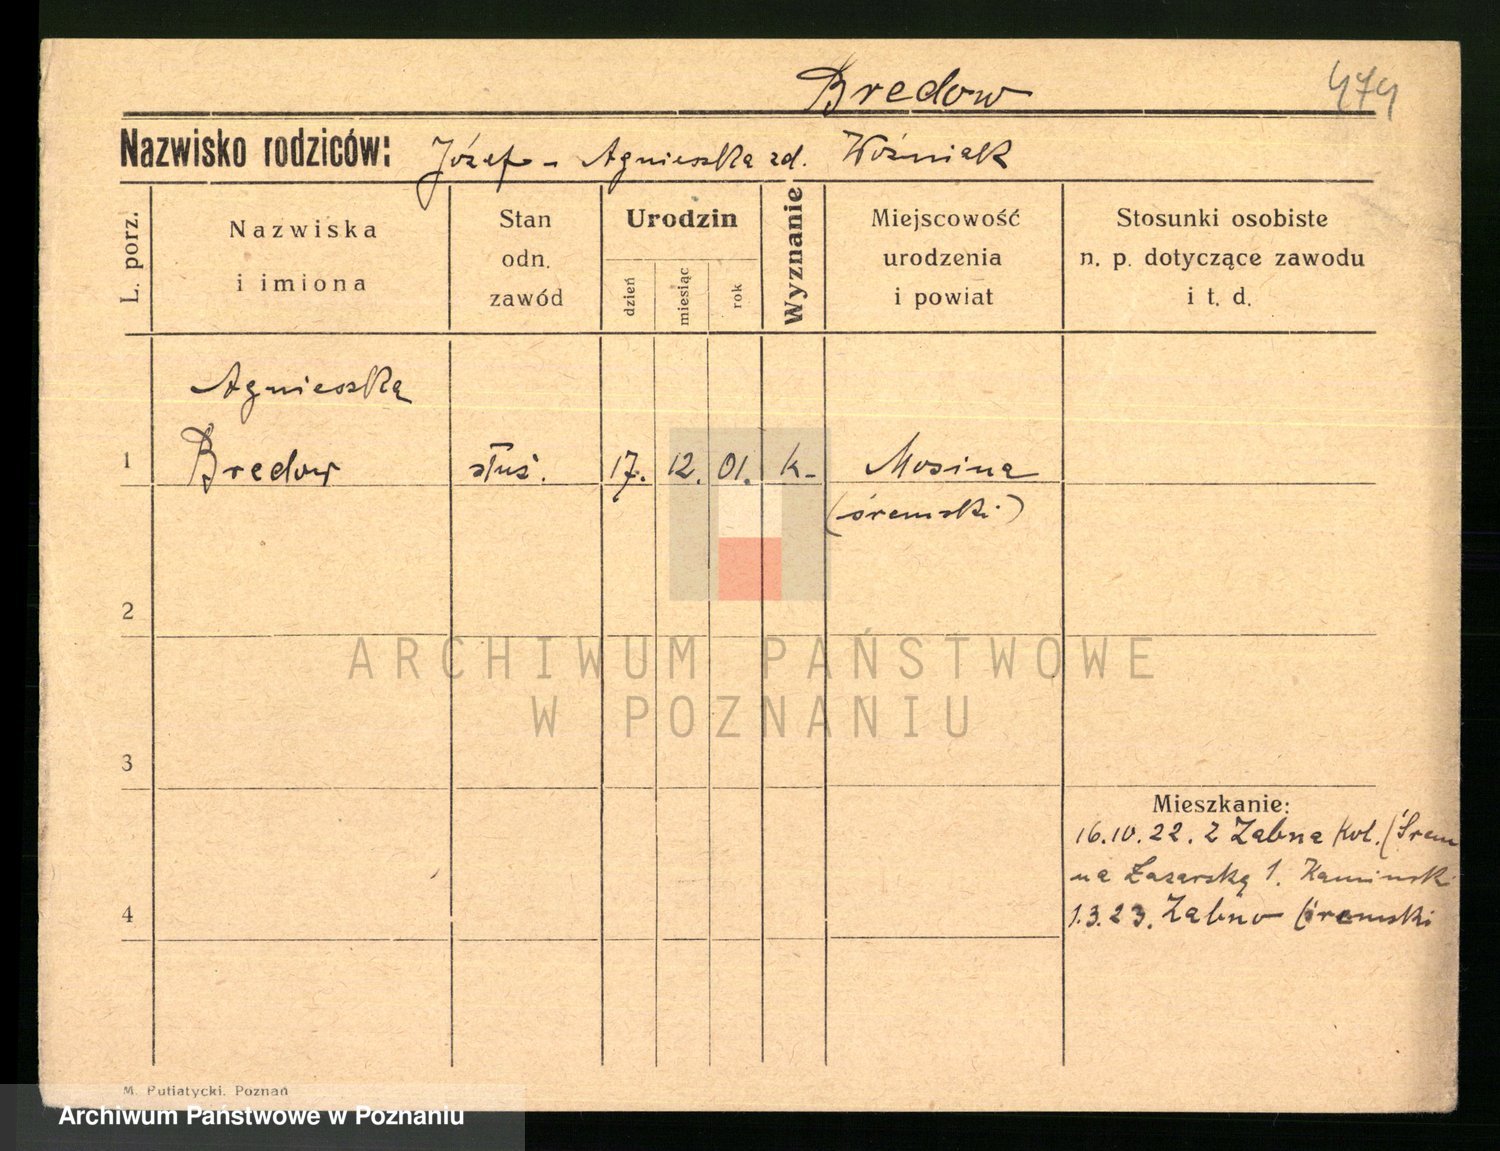 Bredow
474
Nazwisko rodziców: Józef - Agnieszka zd. Woźniak
L. porz.
Nazwiska
i imiona
Stan
odn.
zawód
Urodzin
dzień
miesiąc
rok
Wyznanie
Miejscowość
urodzenia
i powiat
Stosunki osobiste
n. p. dotyczące zawodu
i t. d.
Agnieszka
1 Bredow służ. 17. 12. 01. k- Mosina
(śremski)
2
ARCHIWUM PAŃSTWOWE
W POZNANIU
3
Mieszkanie:
16.10.22. z Żabna Kol. (Śrem
na Łazarską 1. Kaminski
4 1.3.23. Żabno (śremski
M. Putiatycki. Poznań
Archiwum Państwowe w Poznaniu